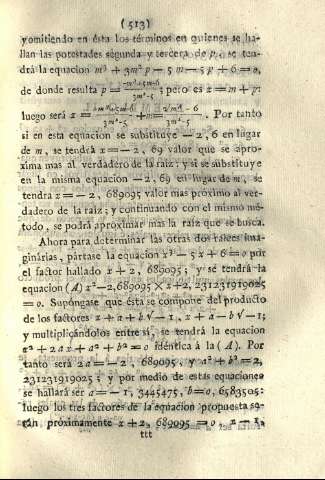 (513)
yomitiendo en ésta los términos en quienes se ha-
llan las potestades segunda y tercera de p, se ten-
drá la equacion m³ + 3m² p — 5m — 5p + 6 = 0,
de donde resulta p = —m³+5m—6 / 3m²—5 ; pero es x = m + p:
luego será x = + m = 2m³—6 / 3m²—5 . Por tanto
si en esta equacion se substituye — 2, 6 en lugar
de m, se tendrá x = — 2, 69 valor que se apro-
xîma mas al verdadero de la raiz: y si se substituye
en la misma equacion — 2, 69 en lugar de m, se
tendra x = — 2, 689095 valor mas próximo al ver-
dadero de la raiz; y continuando con el mismo mé-
todo, se podrá aproximar mas la raiz que se busca.
Ahora para determinar las otras dos raices ima-
ginárias, pártase la equacion x³ — 5x + 6 = 0 por
el factor hallado x + 2, 689095; y se tendrá la
equacion (A) x² — 2,689095 × x + 2, 231231919025
= 0. Supóngase que ésta se compone del producto
de los factores x + a + b √ — 1, x + a — b √ — 1;
y multiplicándolos entre sí, se tendrá la equacion
x² + 2ax + a² + b² = 0 idéntica á la (A). Por
tanto será 2a = — 2, 689095, y a² + b² = 2,
231231919025; y por medio de estas equaciones
se hallará ser a = — 1, 3445475, b = 0, 6583505:
luego los tres factores de la equacion propuesta se-
rán próximamente x + 2, 689095 = 0, x — 1,
ttt